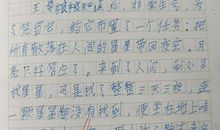 王母娘娘知道后,非常生气,为
了惩罚它,给它布置了一个任务:把
所有散落在人间的星星带回夜空。月
亮只好答应了。来到了人间,到处寻
找星星,可是找了整整三天三夜,连
一颗星星都没有找到,便坐在地上哇